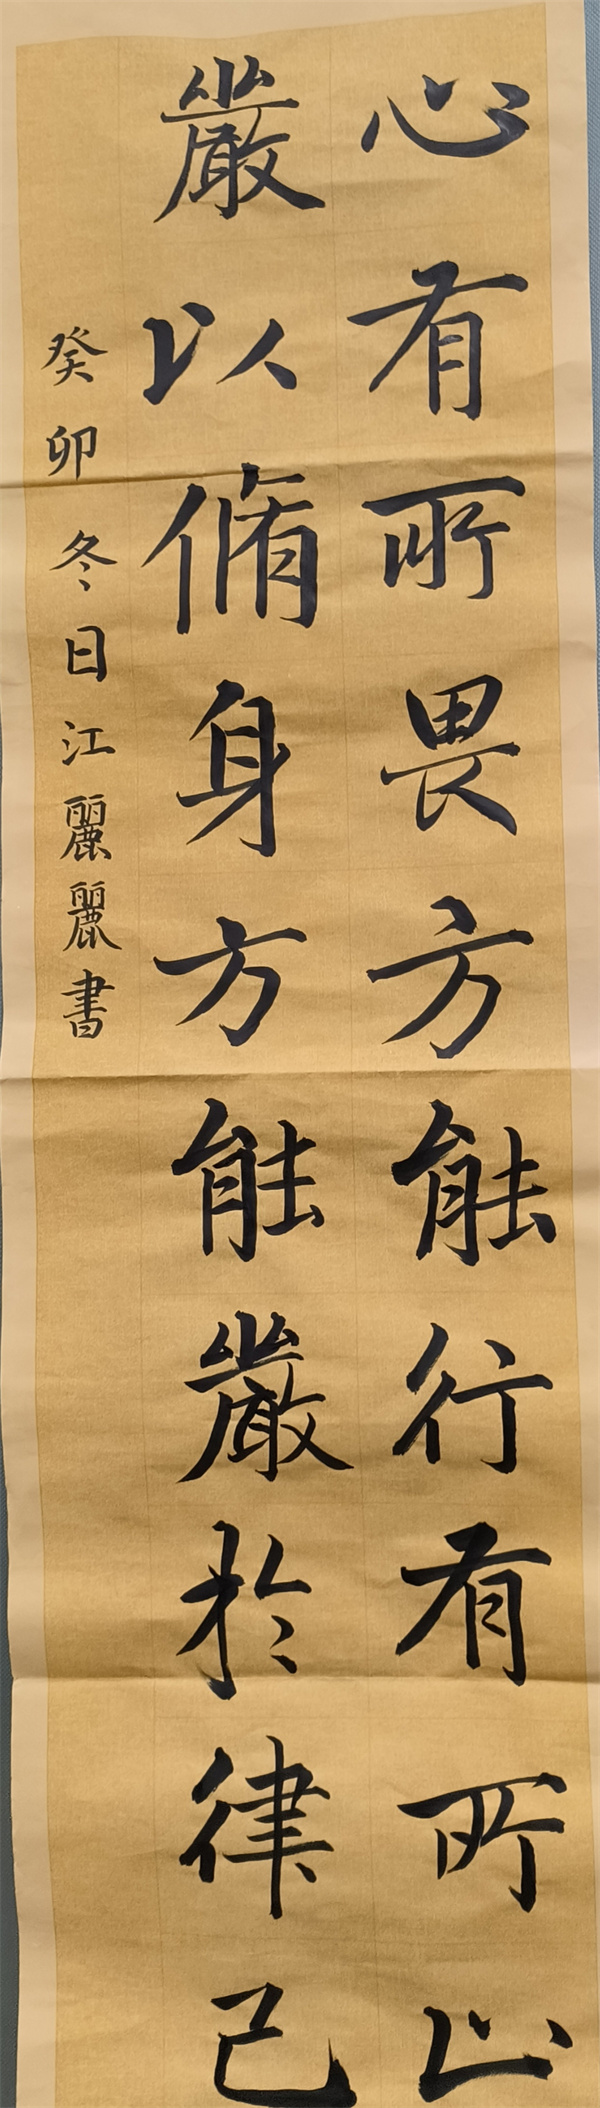 心有所畏方能行有所止
嚴以脩身方能嚴於律己
癸卯冬日江麗麗書